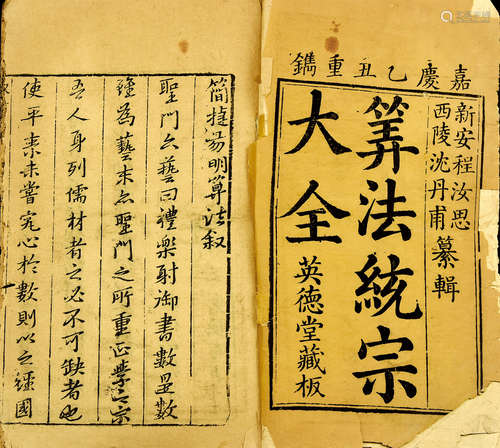 嘉慶乙丑重鐫
新安程汝思
西陵沈丹甫
纂輯
筭法統宗
大全
英德堂藏板
簡捷易明算法叙
聖門六藝曰禮樂射御書數是數
雖為藝末亦聖門之所重正學之宗
吾人身列儒材者之必不可缺者也
使平素未嘗究心於數則以之經國